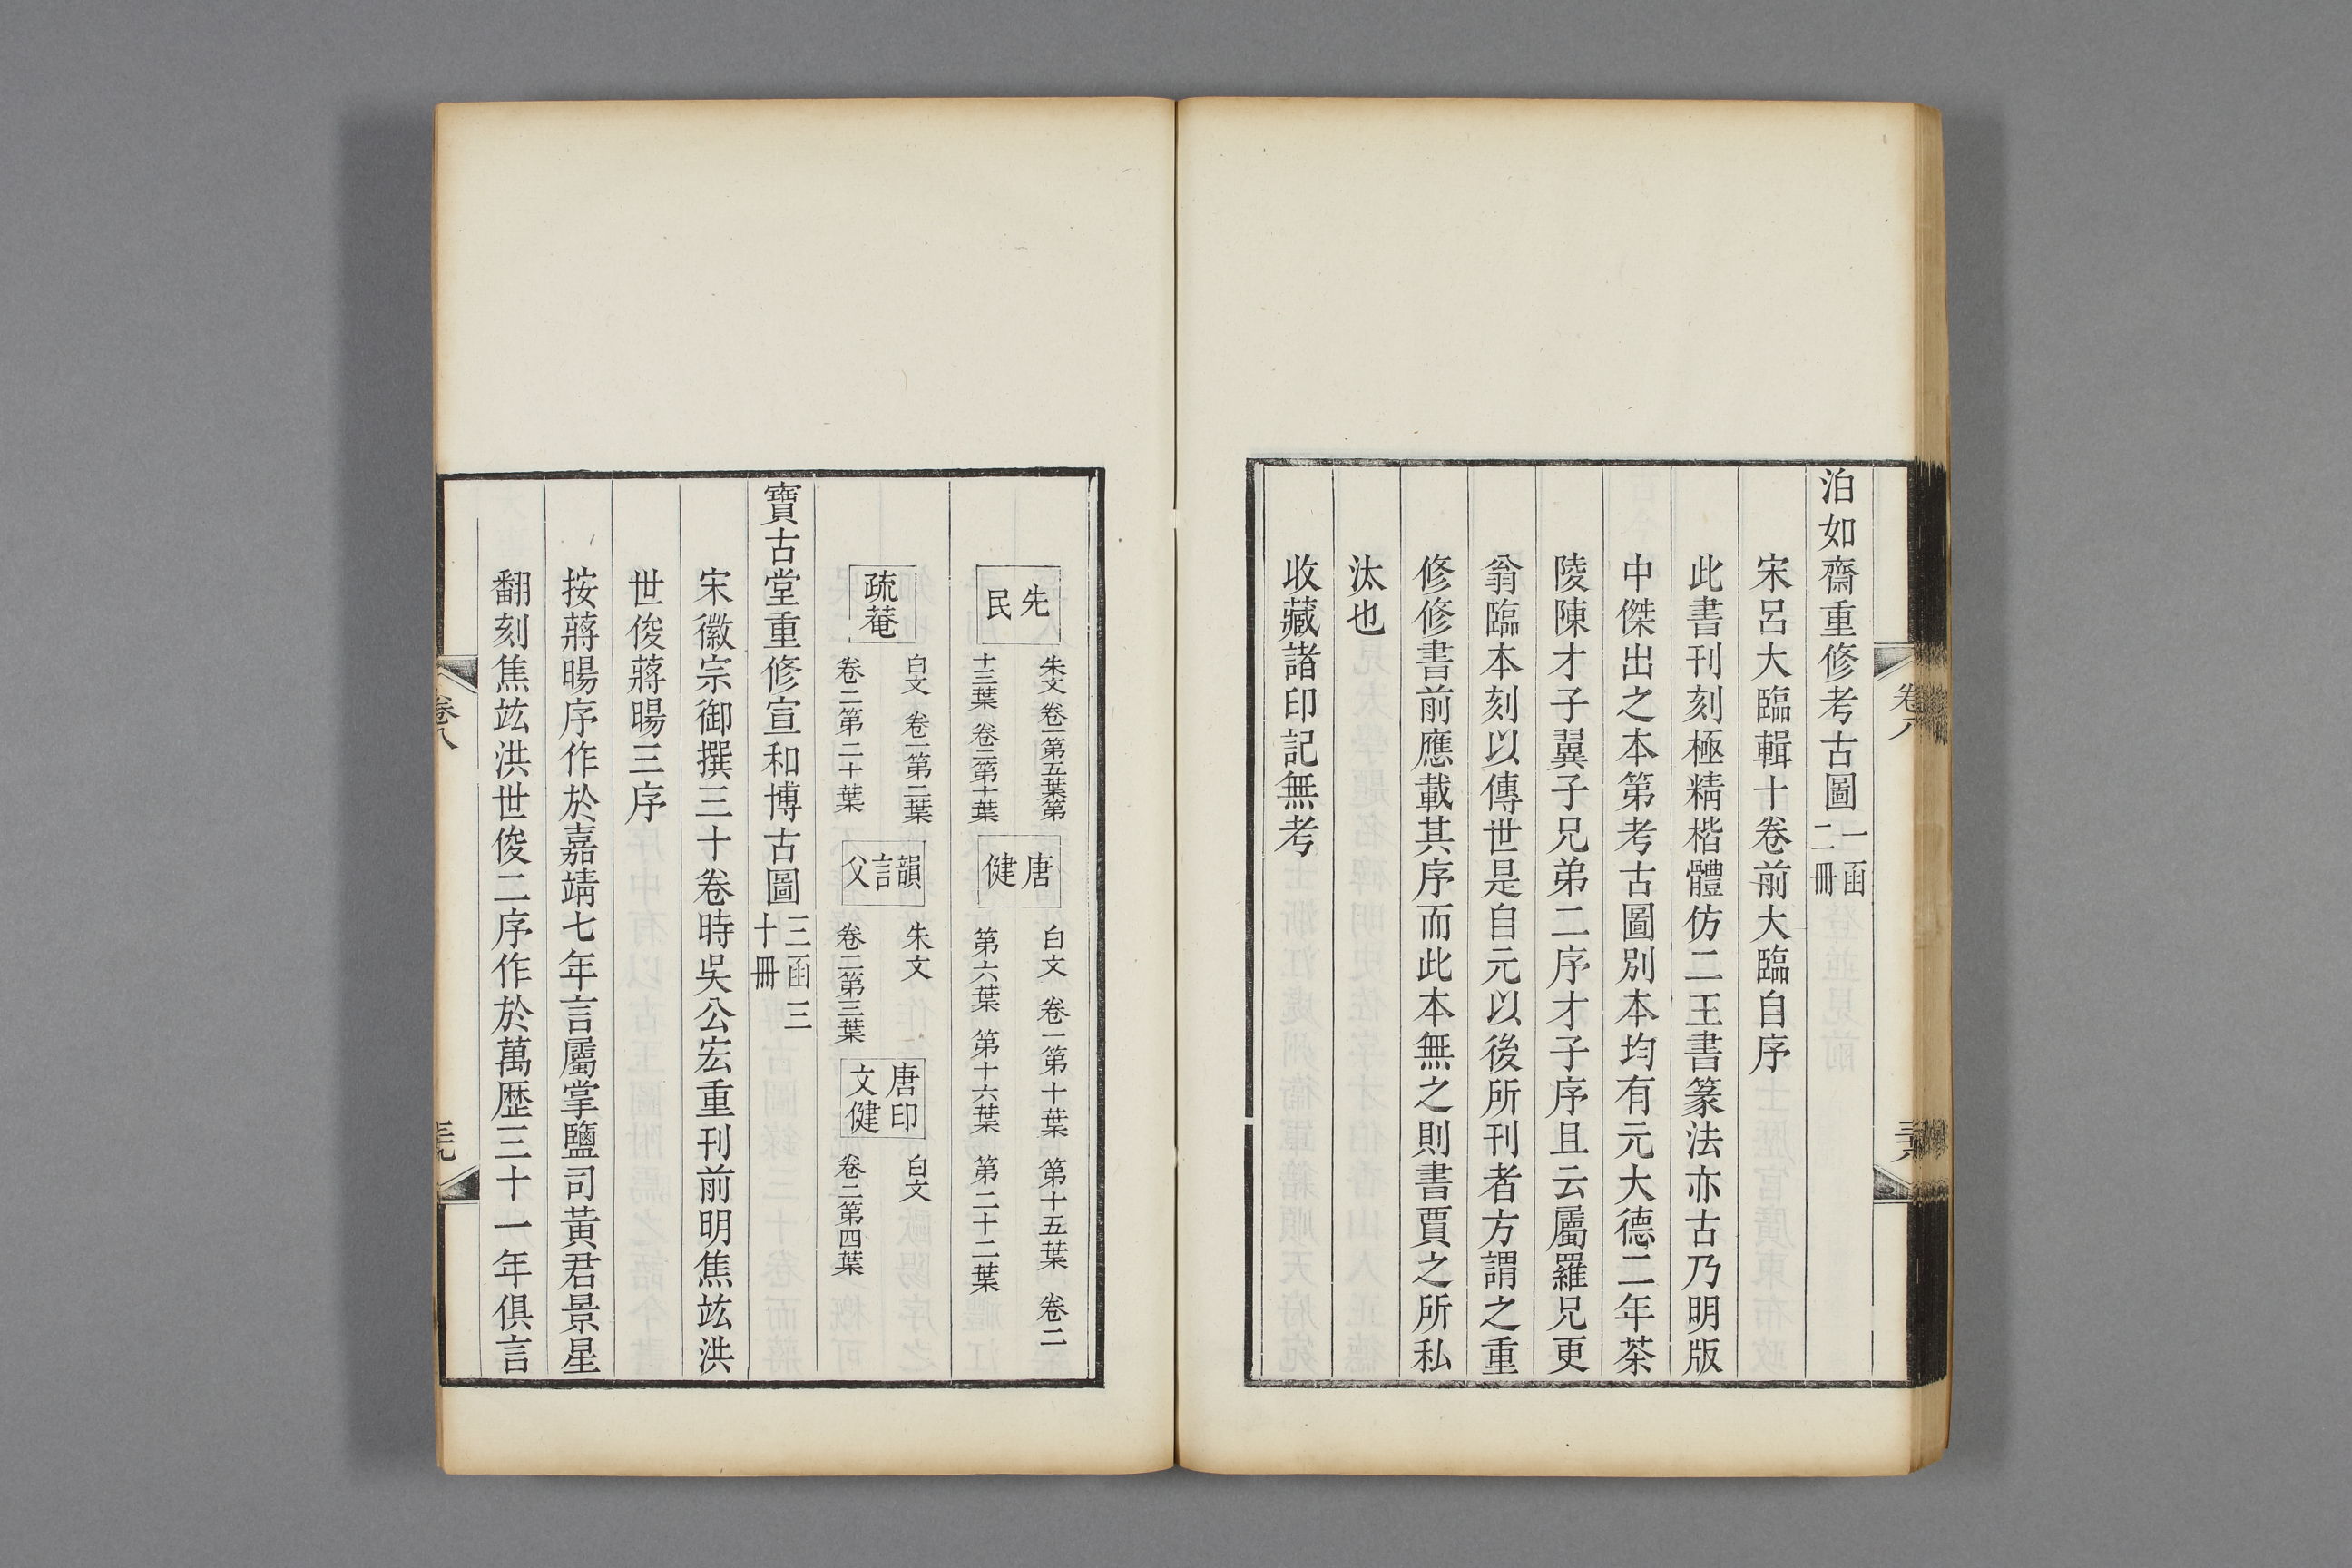 泊如齋重修考古圖 一函二冊
宋呂大臨輯十卷前大臨自序
此書刊刻極精楷體仿二王書篆法亦古乃明版
中傑出之本第考古圖別本均有元大德二年茶
陵陳才子翼子兄弟二序才子序且云屬羅兄更
翁臨本刻以傳世是自元以後所刊者方謂之重
修修書前應載其序而此本無之則書賈之所私
汰也
收藏諸印記無考
卷八
先民 朱文 卷一第五葉第十三葉 卷二第十葉 唐健 白文 卷一第十葉 第十五葉 卷二第六葉 第十六葉 第二十二葉
疏菴 白文 卷一第二葉 卷二第二十葉 韻言父 朱文 卷二第三葉 唐健文印 白文 卷二第四葉
寶古堂重修宣和博古圖 三函三十冊
宋徽宗御撰三十卷時吳公宏重刊前明焦竑洪
世俊蔣暘三序
按蔣暘序作於嘉靖七年言屬掌鹽司黃君景星
翻刻焦竑洪世俊二序作於萬歷三十一年俱言
卷八